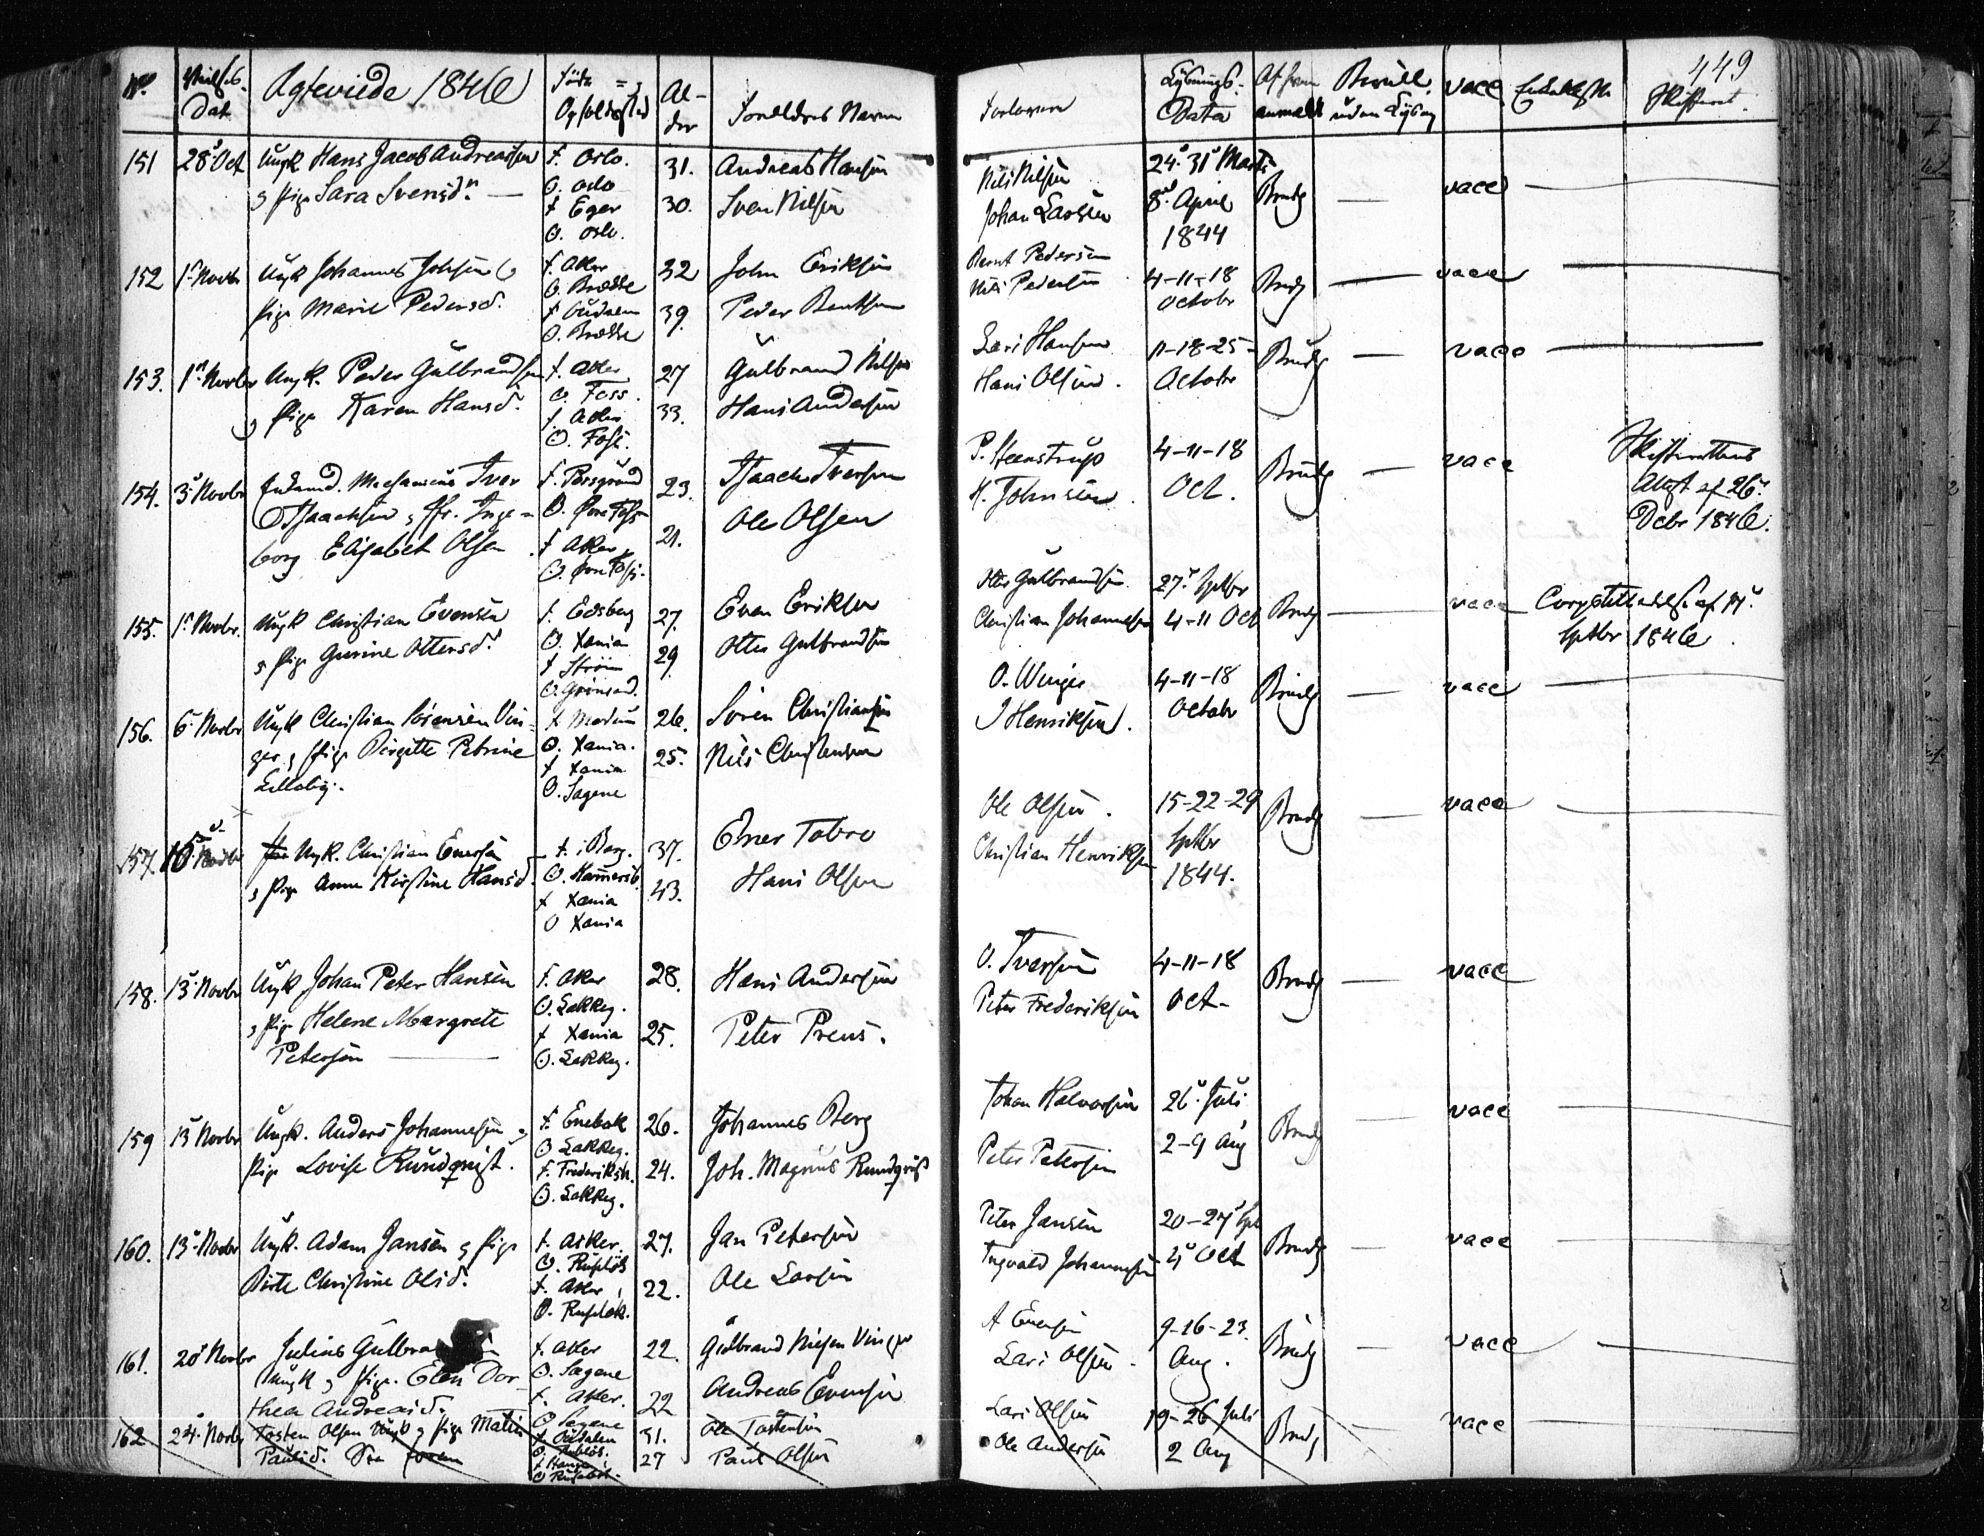 No.
Dat
Ægteviede 1846
Føde =
Opholdssted
Al-
der
Forældres Navne
Forlovere
Lysnings-
Data
Af hvem
anmeldt
Bevill.
uden Lysng
vacc
Enkeskifte
449
Skifteret.
151 28 Oct Ungk Hans Jacob Andreassen f. Oslo. 31. Andreas Hansen
Pige Sara Svensd. O. Oslo
f Eger 30. Sven Nilsen
O. Oslo.
Nils Nilsen 24. 31 Marts
Johan Larsen 8 April Brudg — vacc
1844
152 1 Novbr Ungk Johannes Johnsen f. Aker 32 John Eriksen
O. Brække
Pige Marie Pedersd. 39. Peder Bentsen
O. Brække
Bernt Pedersen
Nils Pedersen 4-11-18 Brudg — vacc
Octobr
153. 1 Novbr Ungk. Peder Gulbrandsen f. Aker 27 Gulbrand Nilsen
O. Foss.
Pige Karen Hansd. f. Aker 33. Hans Andersen
O. Foss.
Lars Hansen 11-18-25- Brudg — vacc
Hans Olsen. Octobr
154. 3 Novbr Mechanicus Iver f. Porsgrund 23. Isaach Iversen
Isaachsen, Jfr. Inge-
borg Elisabeth Olsen f Aker 21. Ole Olsen
P. Steenstrup 4-11-18 Brudg — vacc
H. Johnsen. Oct.
Skifterettens
Attest af 26
Decbr 1846.
155. 1 Novbr. Ungk Christian Evensen f. Edsberg 27. Even Eriksen
O. Xania
Pige Gurine Ottersd. f Strøm 29. Otter Gulbrandsen
O. Grønland.
Otter Gulbrandsen 27 Septbr
Christian Johannesen 4-11 Oct Brudg — vacc
Septbr 1846.
156. 6 Novbr Ungk Christian Sørensen Vin- f Modum 26. Søren Christiansen
ger, Pige Birgitte Petrine O. Xania.
Lilleby. f Xania 25. Nils Christensen
O. Sagene
O. Winger 4-11-18 Brudg — vacc
J Henriksen. Octobr
157. 10 Novbr Ungk. Christian Enersen f. i Berg. 37. Ener Tobro
O. Hammersb.
Pige Anne Kirstine Hansd. f Xania 43. Hans Olsen
O Xania
Ole Olsen. 15-22-29 Brudg — vacc
Christian Henriksen Septbr
1844.
158. 13 Novbr Ungk Johan Peter Hansen f. Aker 28. Hans Andersen
O. Lakkeg.
Pige Helene Margrete f Xania 25. Peter Preus.
Petersen O. Lakkeg.
O. Iversen 4-11-18 Brudg — vacc
Peter Frederiksen Oct-
159 13 Novbr Ungk. Anders Johannesen f. Enebak 26. Johannes Berg
O Lakkeg.
Pige Lovise Rundqvist. f. Frederiksh. 24. Joh. Magnus Rundqvist
O. Lakkeg.
Johan Halvorsen 26 Juli Brudg — vacc
Peter Petersen 2-9 Aug
160. 13 Novbr Ungk. Adam Jansen, Pige f. Asker. 27. Jan Petersen
Birte Christine Olsd. f. Aker 22. Ole Larsen
Peter Jansen 20-27 Spt Brudg — vacc
Ingvald Johannesen 4 Oct
161. 20 Novbr Julius Gulbra f. Aker 22. Gulbrand Nilsen Vinger
Ungk, Pige. Elen Dor- O. Sagene
thea Andreasd. f. Aker. 22 Andreas Evensen
O Sagene
A Evensen 9-16-23. Brudg — vacc
Lars Olsen Aug.
162 24 Novbr Tosten Olsen Ungk, Pige Mathea 31. Ole Tostensen
Paulsd. 27 Paul Olsen
Lars Olsen 19-26 Juli Brudg — vacc
Ole Andersen 2 Aug